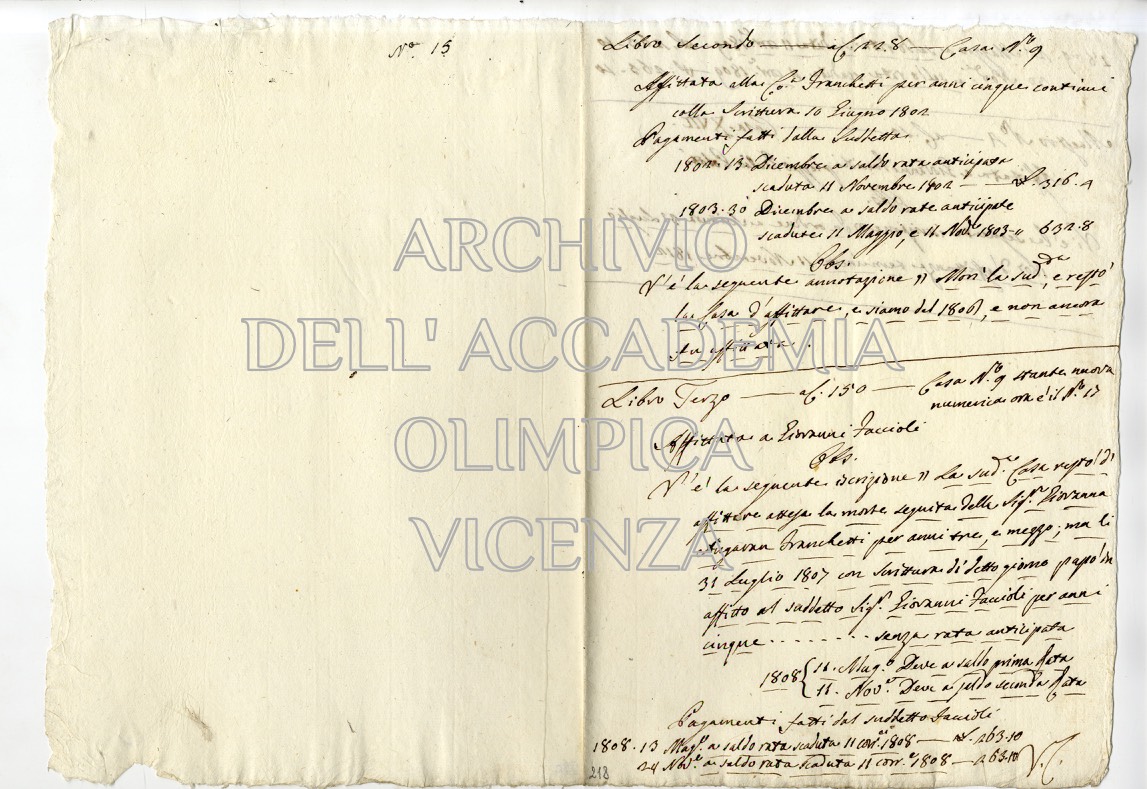 N.º 15
Libro Secondo — a C. 228 — Casa N.º 9
Affittata alla Franchetti per anni cinque continui
colla Scrittura 10 Giugno 1802
Pagamenti fatti dalla Suddetta
1802. 13 Dicembre a saldo rata anticipata
scaduta 11 Novembre 1802 — 316.4
1803. 30 Dicembre a saldo rate anticipate
scadute 11 Maggio, e 11 Nov.e 1803 „ 632.8
Obs.
V'è la seguente annotazione „ Morì la sud.da, e restò
la Casa d'affittare, e siamo del 1806, e non ancora
affittata.
Libro Terzo — a C. 150 — Casa N.º 9 stante nuova
numerica ora è il N.º 17
Affittata a Giovanni Faccioli
Obs.
V'è la seguente iscrizione „ La sud.a Casa restò d'
affittare attesa la morte seguita della Sig.ra Giovanna
Franchetti per anni tre, e mezzo; ma li
31 Luglio 1807 con scrittura di detto giorno passò in
affitto al suddetto Sig.r Giovanni Faccioli per anni
cinque . . . . . . . . senza rata anticipata
1808 { 11. Mag.o Deve a saldo prima Rata
11. Nov.e Deve a saldo seconda Rata
Pagamenti fatti dal suddetto Faccioli
1808. 13 Mag.o a saldo rata scaduta 11 corr.e 1808 — 263.10
24 Nov.e a saldo rata scaduta 11 corr.e 1808 — 263.10
218
ARCHIVIO
DELL' ACCADEMIA
OLIMPICA
VICENZA